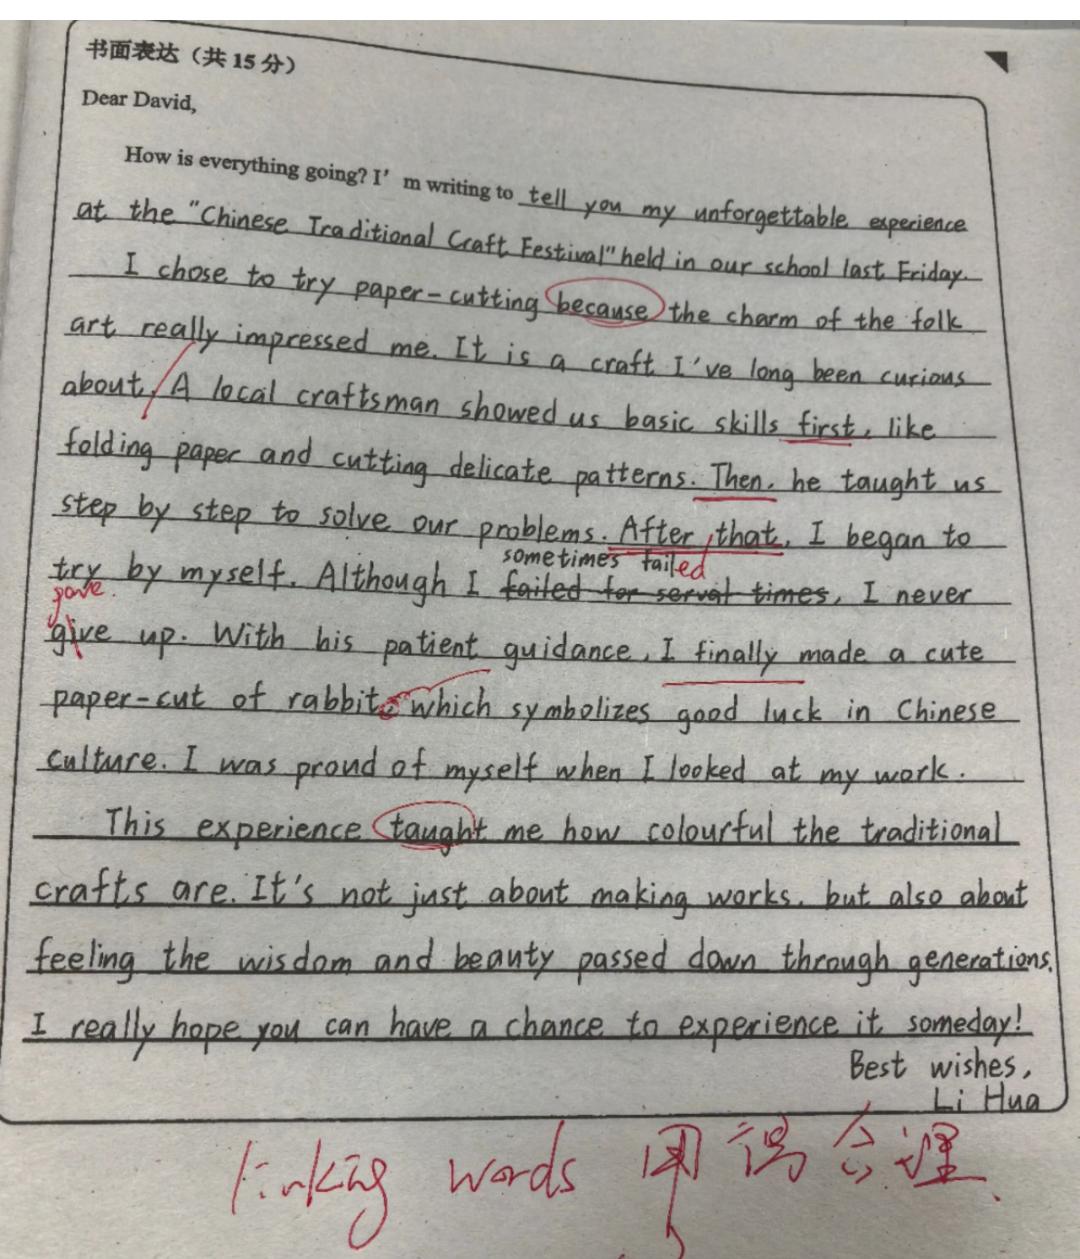 书面表达（共 15 分）
Dear David,
How is everything going? I'm writing to tell you my unforgettable experience
at the "Chinese Traditional Craft Festival" held in our school last Friday.
I chose to try paper-cutting because the charm of the folk
art really impressed me. It is a craft I've long been curious
about. A local craftsman showed us basic skills first, like
folding paper and cutting delicate patterns. Then, he taught us
step by step to solve our problems. After that, I began to
sometimes failed
try by myself. Although I failed for serval times, I never
gave
give up. With his patient guidance, I finally made a cute
paper-cut of rabbit, which symbolizes good luck in Chinese
culture. I was proud of myself when I looked at my work.
This experience taught me how colourful the traditional
crafts are. It's not just about making works, but also about
feeling the wisdom and beauty passed down through generations.
I really hope you can have a chance to experience it someday!
Best wishes,
Li Hua
linking words 用得合理.